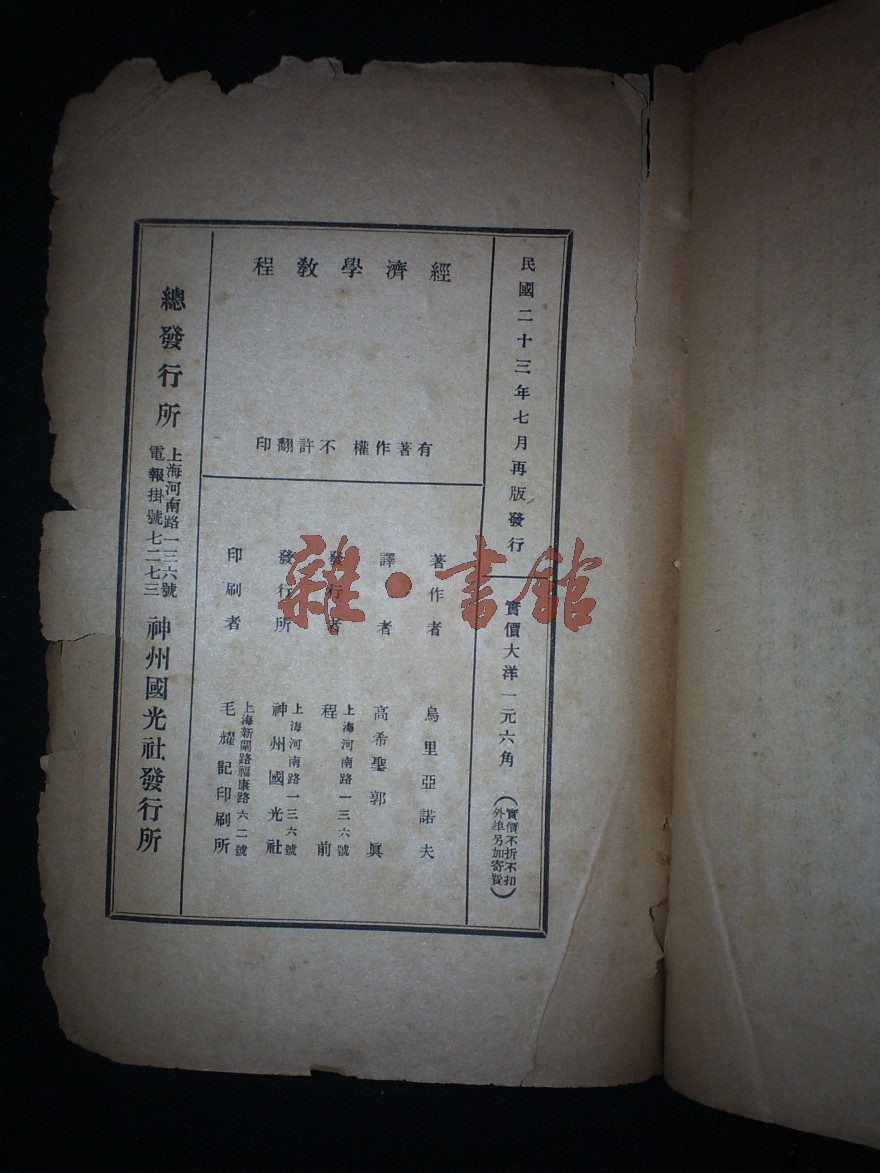 民國二十三年七月再版發行
實價大洋一元六角
（實價不折不扣
外埠另加寄費）
經濟學教程
有著作權 不許翻印
著作者 烏里亞諾夫
譯者 高希聖 郭眞
發行者 上海河南路一三六號
程前
發行所 上海河南路一三六號
神州國光社
印刷者 上海新閘路福康路六二號
毛耀記印刷所
總發行所 上海河南路一三六號
電報掛號七二七三
神州國光社發行所
雜·書館